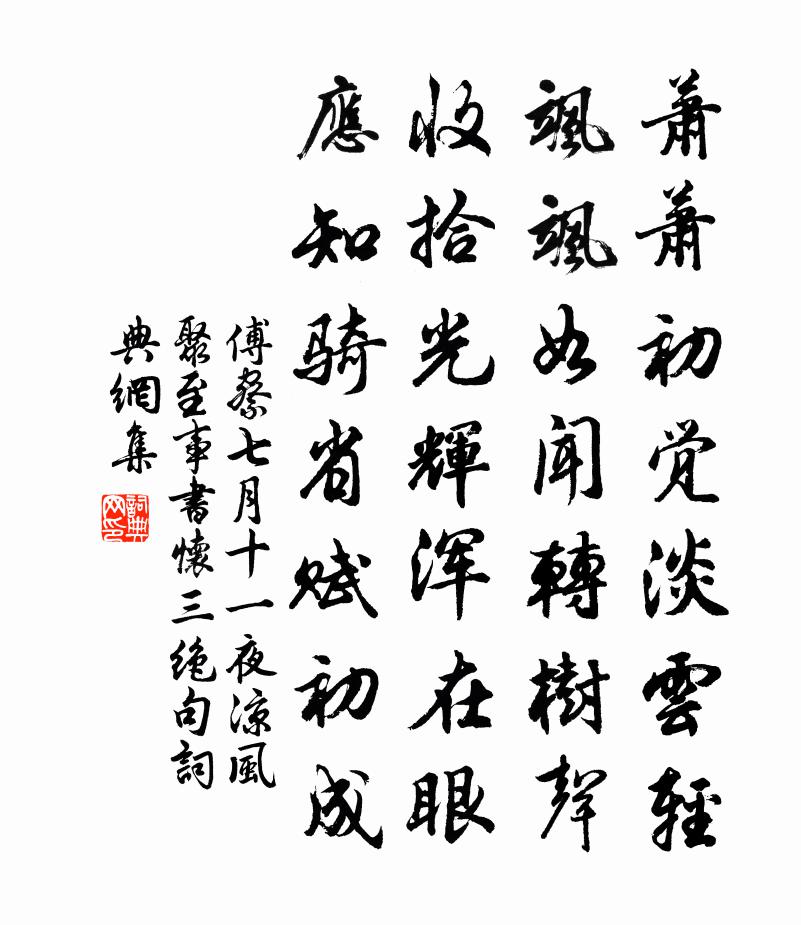 蕭蕭初觉淡雲輕
颯颯如聞轉樹聲
收拾光輝渾在眼
應知騎省赋初成
傅察七月十一夜涼風
聚至事書懷三絶句詞
典網集
詞典网印